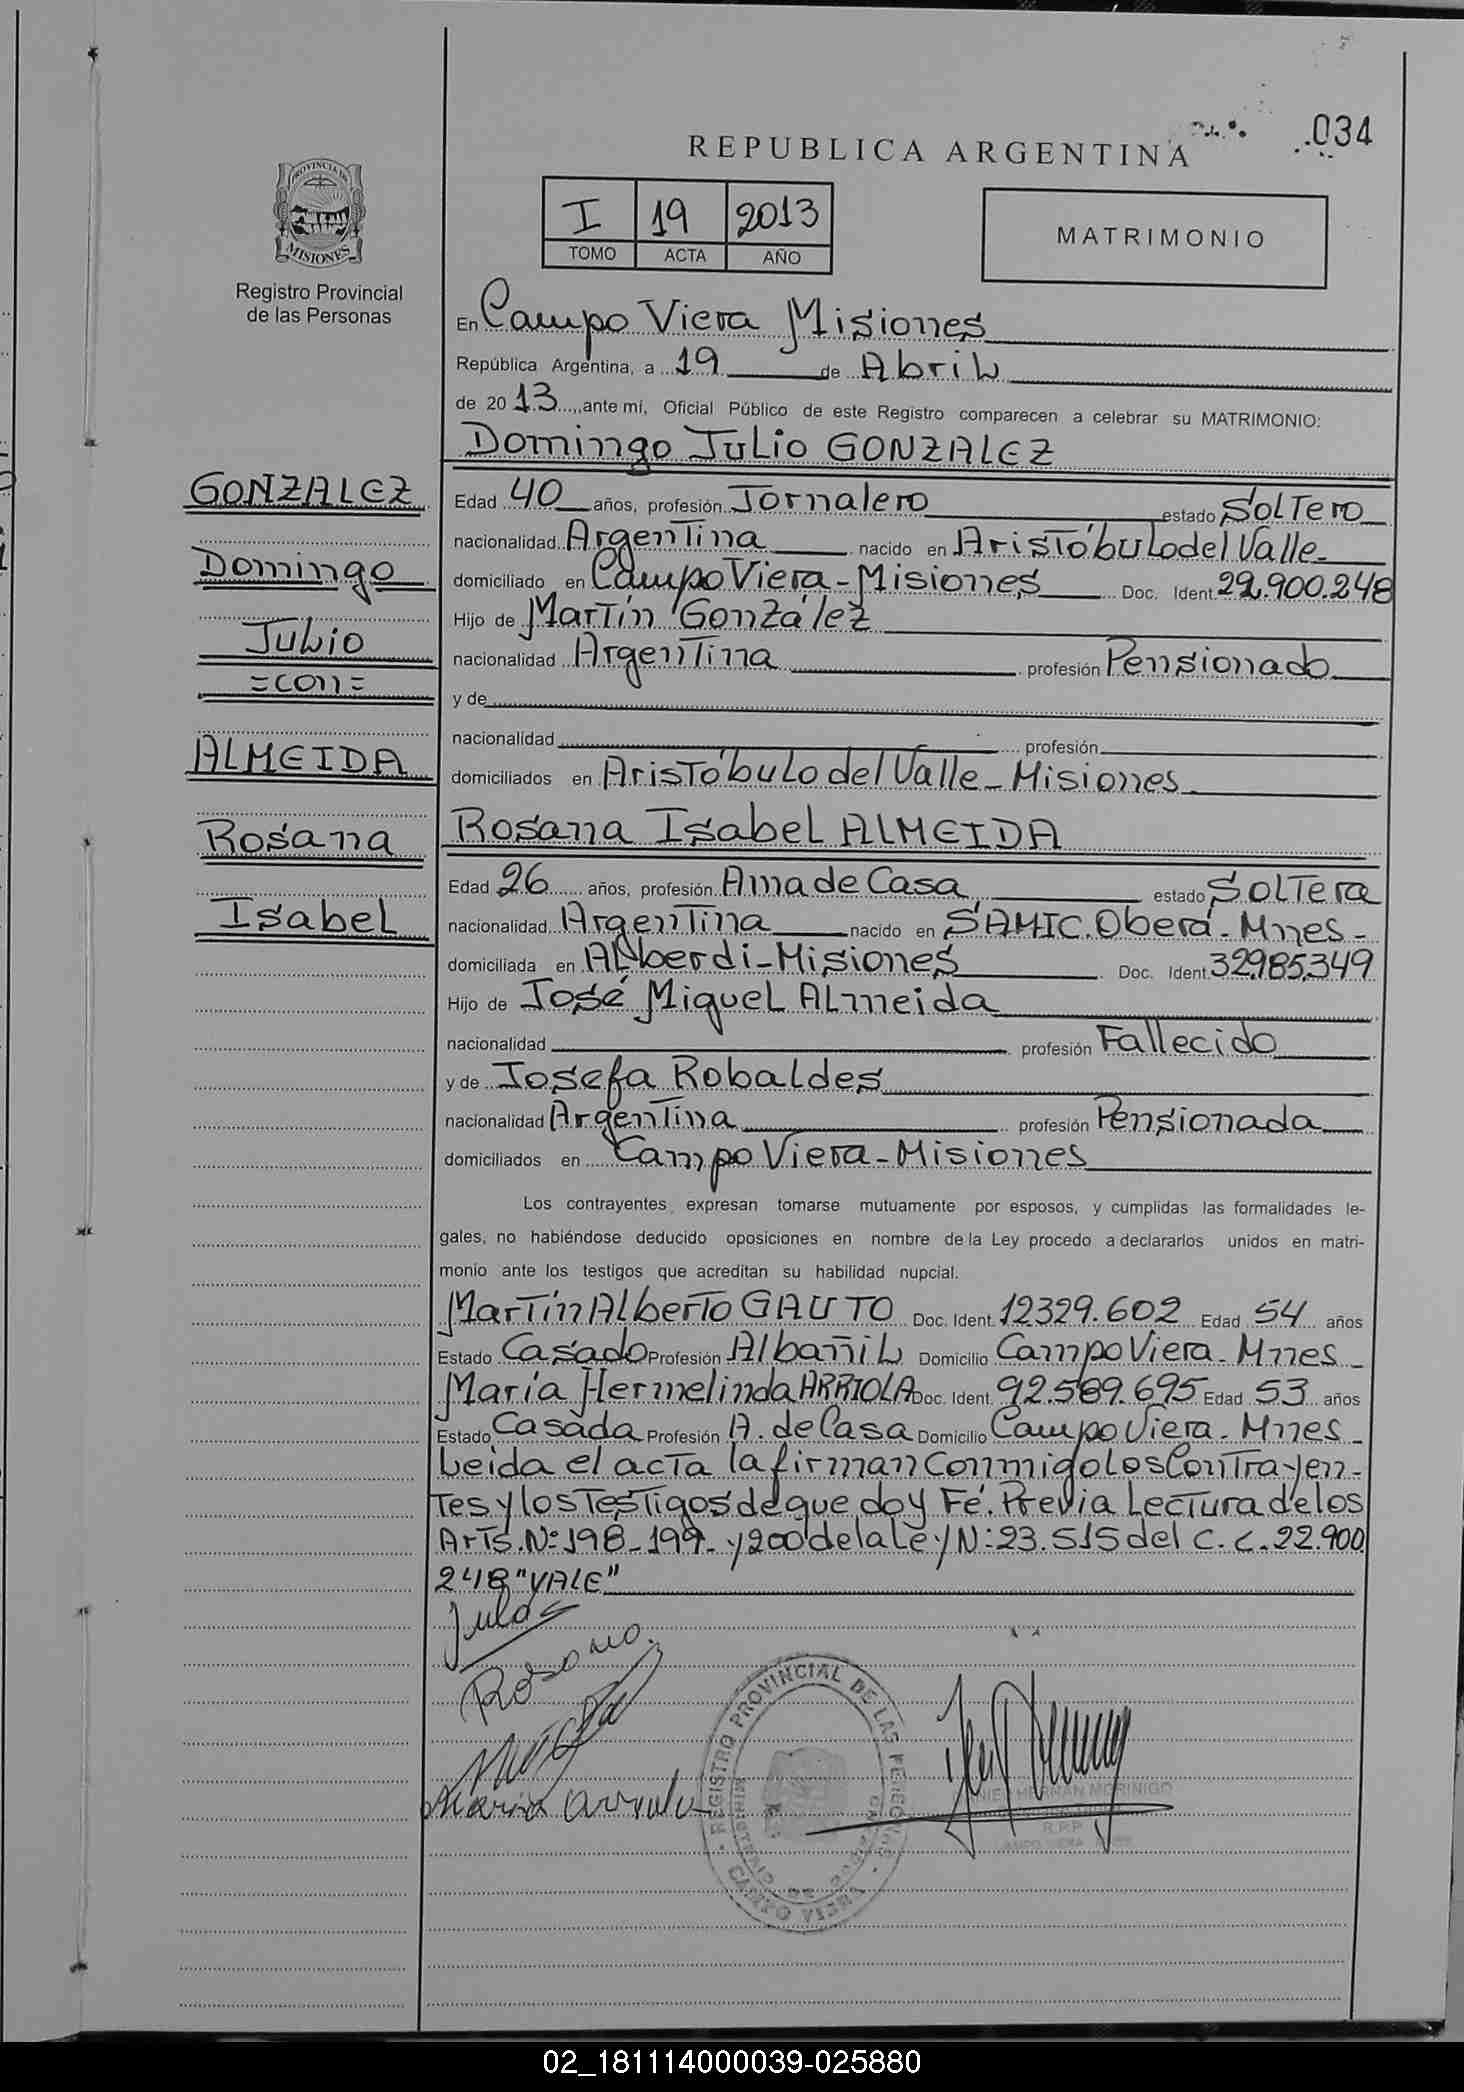 .034
REPUBLICA ARGENTINA
PROVINCIA DE
MISIONES
Registro Provincial
de las Personas
I 19 2013
TOMO ACTA AÑO
MATRIMONIO
En Campo Viera Misiones
República Argentina, a 19 de Abril
de 2013, ante mí, Oficial Público de este Registro comparecen a celebrar su MATRIMONIO:
Domingo Julio GONZALEZ
GONZALEZ
Domingo
Julio
=con=
ALMEIDA
Rosana
Isabel
Edad 40 años, profesión Jornalero estado Soltero
nacionalidad Argentina nacido en Aristóbulo del Valle
domiciliado en Campo Viera - Misiones Doc. Ident. 22.900.248
Hijo de Martín González
nacionalidad Argentina profesión Pensionado
y de
nacionalidad profesión
domiciliados en Aristóbulo del Valle - Misiones
Rosana Isabel ALMEIDA
Edad 26 años, profesión Ama de Casa estado Soltera
nacionalidad Argentina nacido en SAMIC. Oberá - Mnes -
domiciliada en Alberdi - Misiones Doc. Ident. 32.985.349
Hijo de José Miguel Almeida
nacionalidad profesión Fallecido
y de Josefa Robaldes
nacionalidad Argentina profesión Pensionada
domiciliados en Campo Viera - Misiones
Los contrayentes expresan tomarse mutuamente por esposos, y cumplidas las formalidades le-
gales, no habiéndose deducido oposiciones en nombre de la Ley procedo a declararlos unidos en matri-
monio ante los testigos que acreditan su habilidad nupcial.
Martín Alberto GAUTO Doc. Ident. 12329.602 Edad 54 años
Estado Casado Profesión Albañil Domicilio Campo Viera - Mnes -
María Hermelinda ARRIOLA Doc. Ident. 92.589.695 Edad 53 años
Estado Casada Profesión A. de Casa Domicilio Campo Viera - Mnes -
Leida el acta la firman conmigo los Contrayen-
tes y los Testigos de que doy Fé. Previa Lectura de los
Arts. Nº: 198 - 199 - y 200 de la Ley N: 23.515 del C. C. 22.900
248 "VALE"
Rosana.
Maria Arriola
REGISTRO PROVINCIAL DE LAS PERSONAS
CAMPO VIERA
HERNAN MORINIGO
R.P.P
02_181114000039-025880